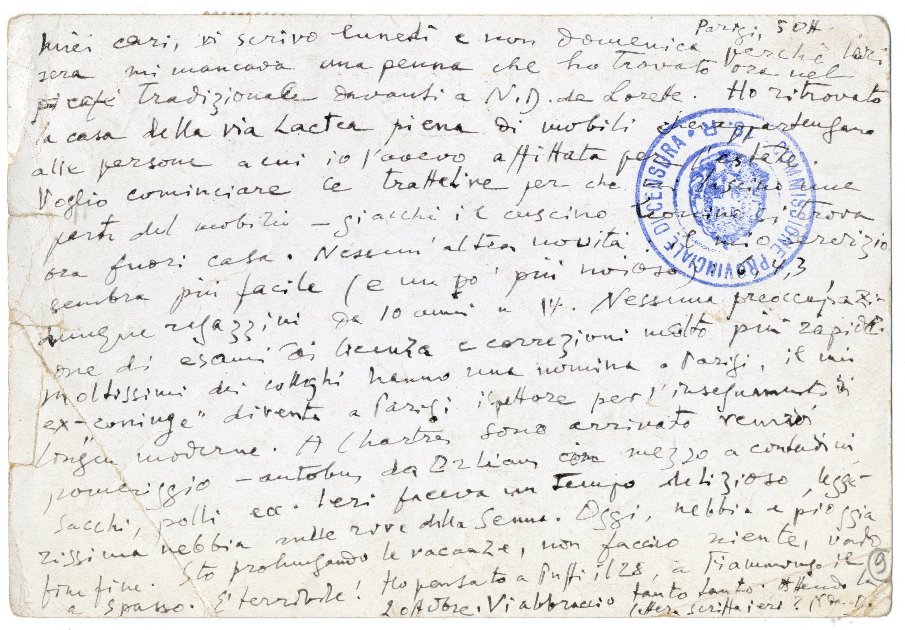 Parigi, 5 OH
Miei cari, vi scrivo lunedì e non domenica perché ieri
sera mi mancava una penna che ho trovato ora nel
café tradizionale davanti a N.D. de Lorete. Ho ritrovato
la casa della via Lactea piena di mobili che appartengono
alle persone a cui io l'avevo affittata per l'estate.
Voglio cominciare le trattative per che mi lascino una
parte del mobilio – giacchi il cuscino si trova
ora fuori casa. Nessun'altra novità. Il mio servizio
sembra più facile (e un po' più noioso) 5, 4, 3
dunque ragazzini da 10 anni a 14. Nessuna preoccupazi-
one di esami di licenza e correzioni molto più rapide.
Moltissimi dei colleghi hanno una nomina a Parigi, il mio
ex-coniuge" diventa a Parigi ispettore per l'insegnamento di
lingue moderne. A Chartres sono arrivato venerdì
pomeriggio – autobus da Orléans in mezzo a contadini
sacchi, polli ecc. Ieri faceva un tempo delizioso, legge-
rissima nebbia sulle rive della Senna. Oggi, nebbia e pioggia
fine fine. Sto prolungando le vacanze, non faccio niente, vado
a spasso. E' terribile! Ho pensato a Puffi il 28, a Fiammingo il
2 ottobre. Vi abbraccio tanto tanto. Attendo la
lettera scritta ieri?
9
COMMISSIONE PROVINCIALE DI CENSURA
18. R.